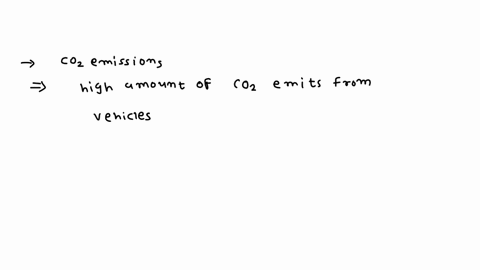 → CO₂ emissions
⇒ high amount of CO₂ emits from
vehicles